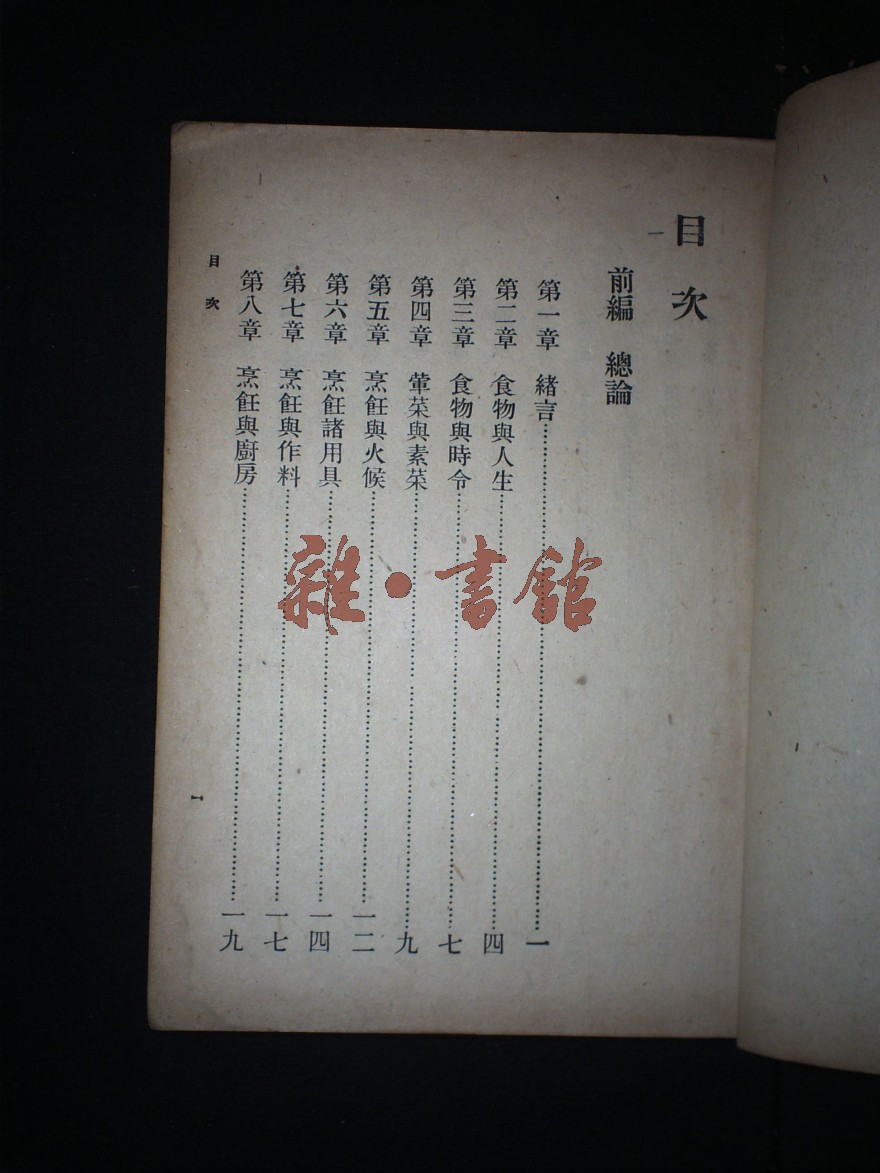 目次
前編　總論
第一章　緒言…………一
第二章　食物與人生…………四
第三章　食物與時令…………七
第四章　葷菜與素菜…………九
第五章　烹飪與火候…………一二
第六章　烹飪諸用具…………一四
第七章　烹飪與作料…………一七
第八章　烹飪與廚房…………一九
目次
一
雜·書館